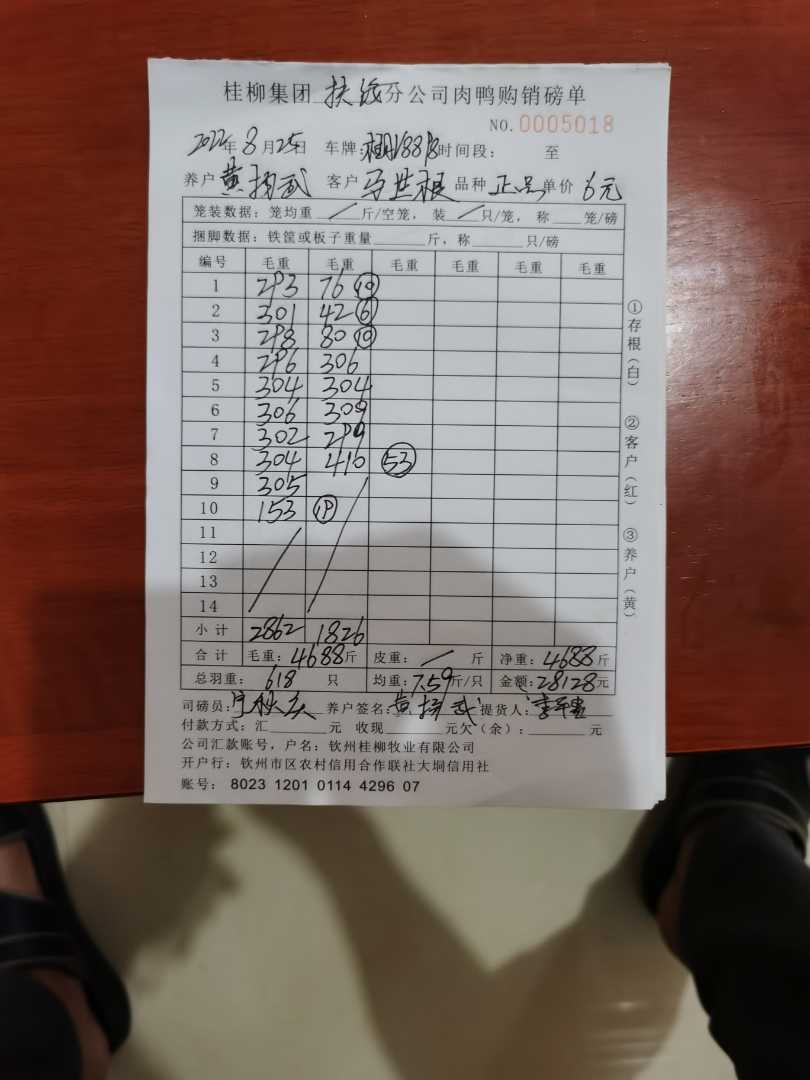 桂柳集团 扶绥 分公司肉鸭购销磅单
NO. 0005018
2022年 8 月 25日 车牌: 时间段: 至
养户 黄扬武 客户 马世根 品种 正品 单价 6元
笼装数据: 笼均重 / 斤/空笼, 装 / 只/笼, 称 笼/磅
捆脚数据: 铁筐或板子重量 斤, 称 只/磅
编号 毛重 毛重 毛重 毛重 毛重 毛重
1 293 76 ⑩
2 301 42 ⑥
3 298 80 ⑩
4 296 306
5 304 304
6 306 309
7 302 299
8 304 410 53
9 305
10 153 19
11
12
13
14
小计 2862 1826
合计 毛重: 4688斤 皮重: / 斤 净重: 4688斤
总羽重: 618 只 均重: 7.59斤/只 金额: 28128元
司磅员: 养户签名: 黄扬武 提货人:
付款方式: 汇 元 收现 元欠(余): 元
公司汇款账号, 户名: 钦州桂柳牧业有限公司
开户行: 钦州市区农村信用合作联社大垌信用社
账号: 8023 1201 0114 4296 07
①存根(白) ②客户(红) ③养户(黄)